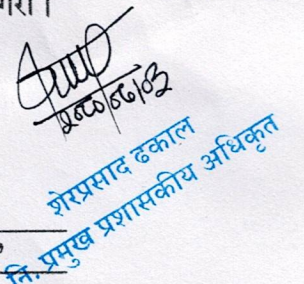 गरी।
२०८०/०६/०३
शेरप्रसाद ढकाल
नि. प्रमुख प्रशासकीय अधिकृत